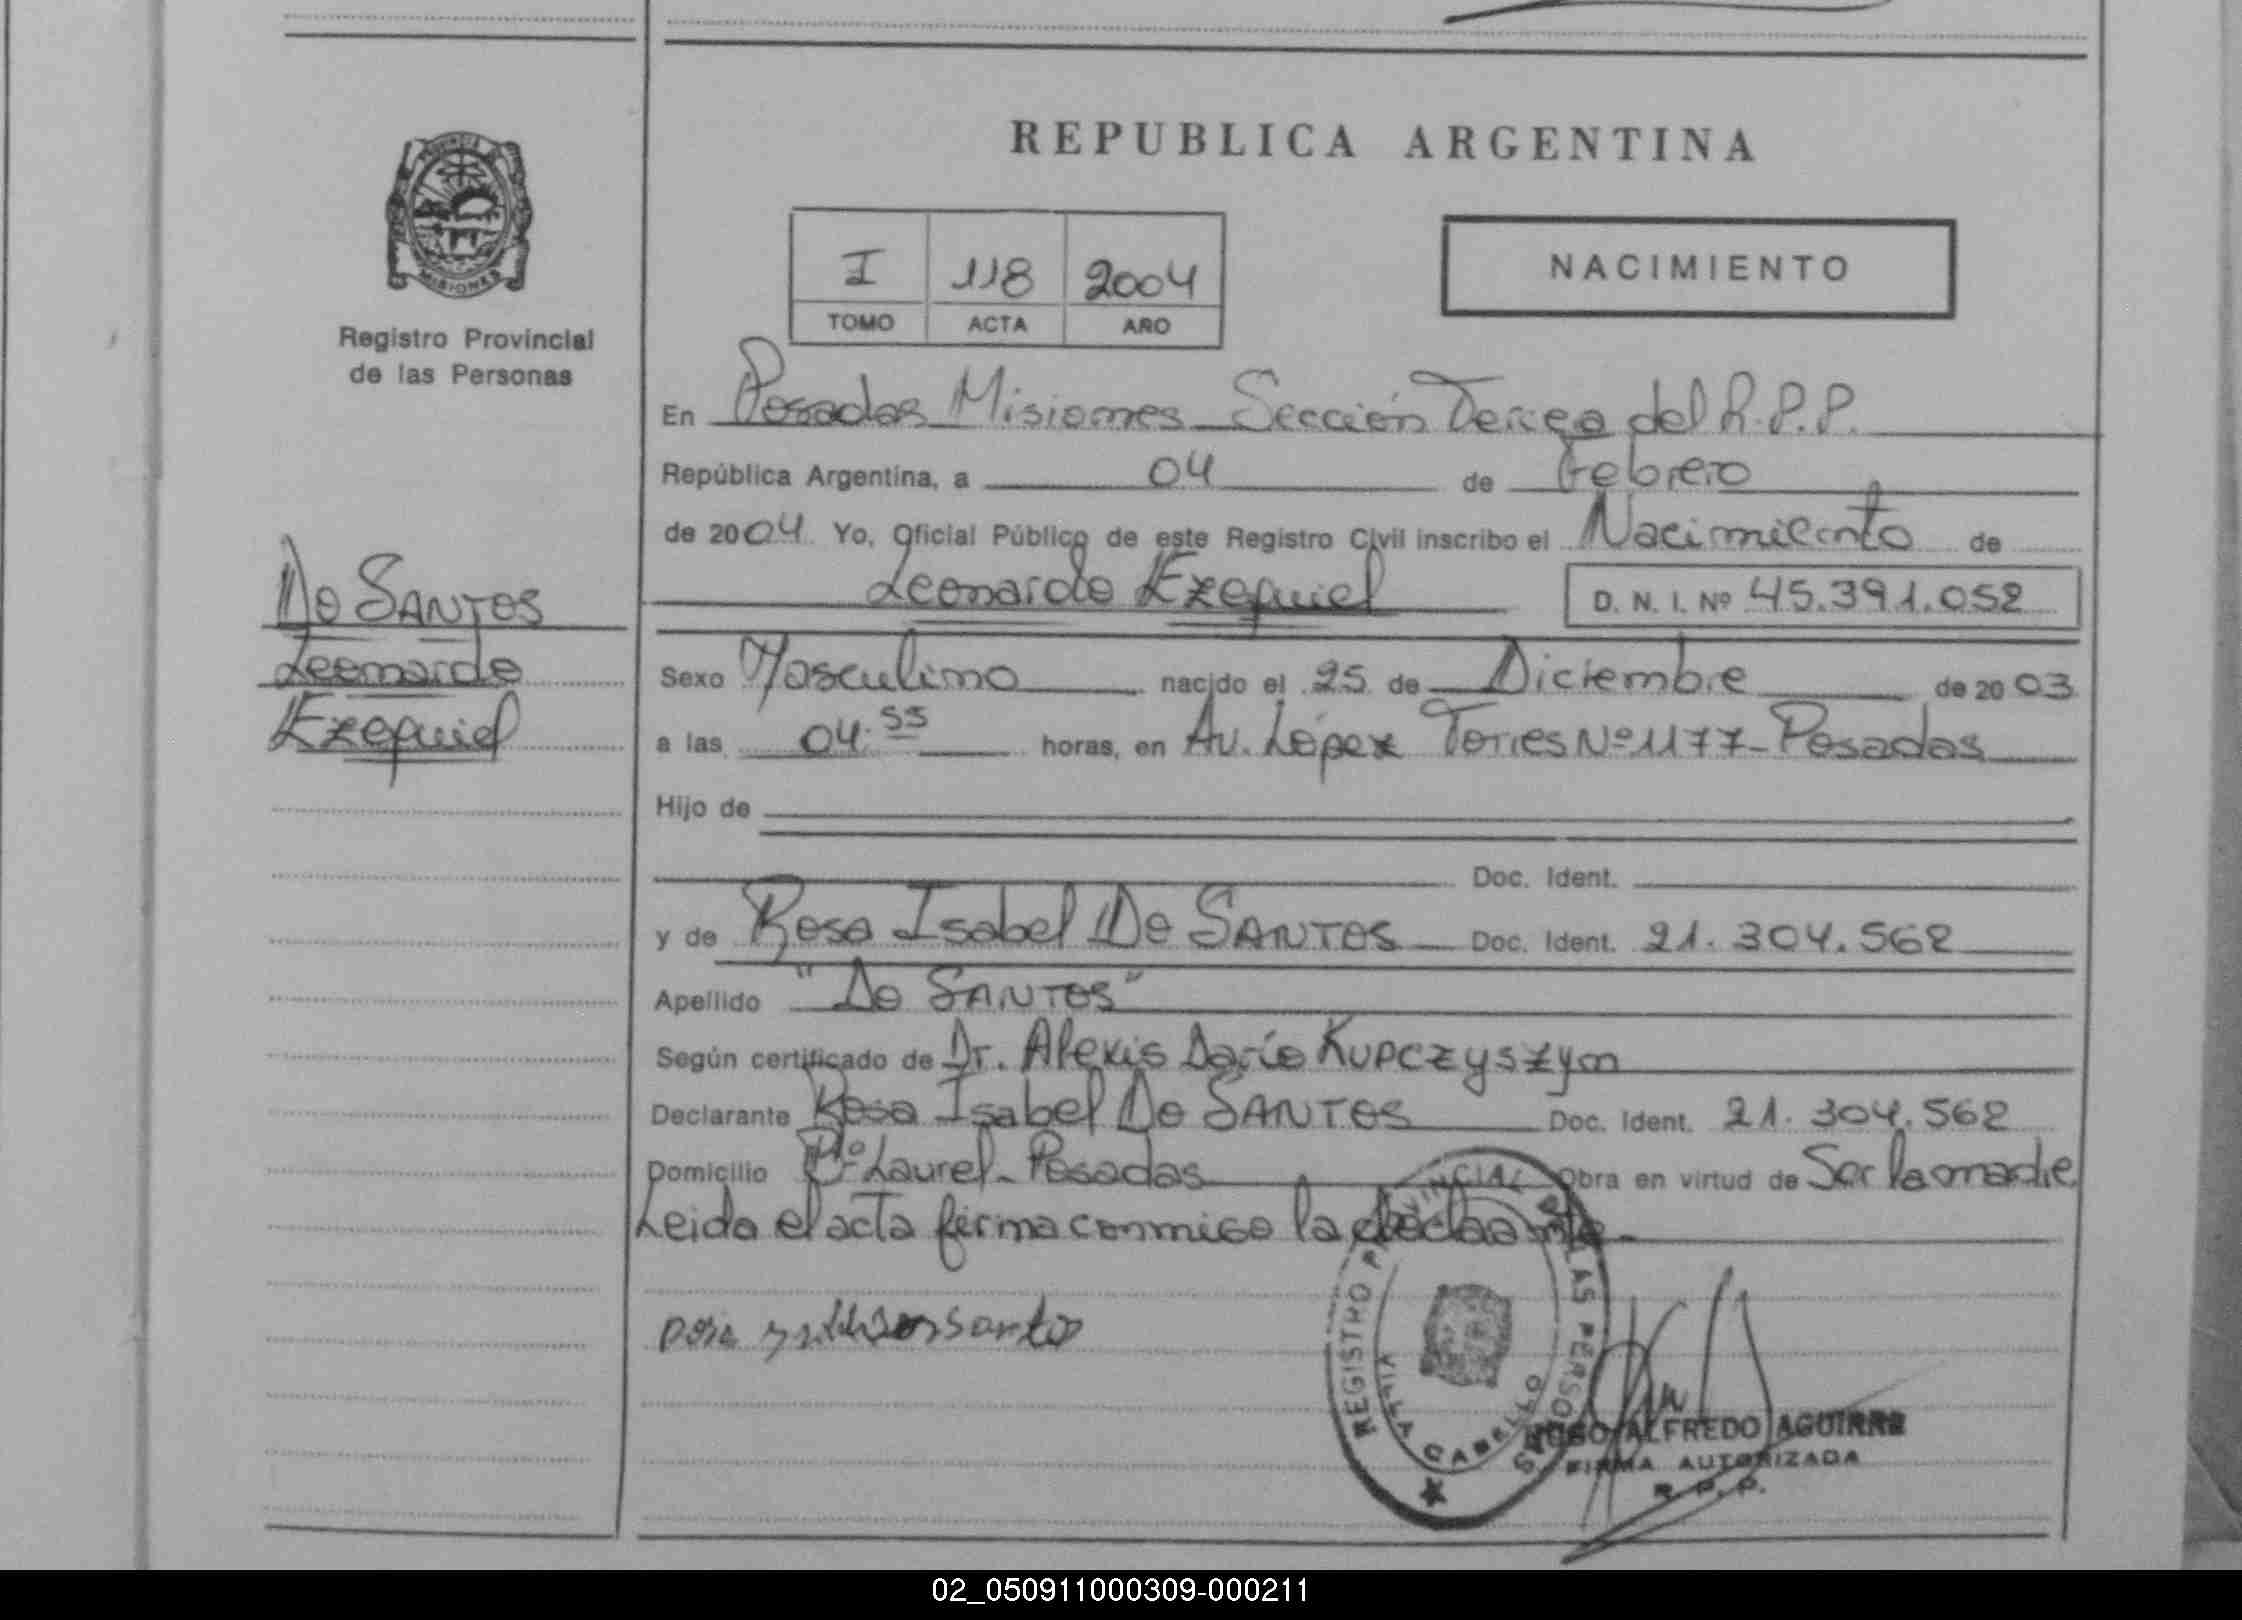 REPUBLICA ARGENTINA
PROVINCIA DE
MISIONES
Registro Provincial
de las Personas
I 118 2004
TOMO ACTA AÑO
NACIMIENTO
En Posadas Misiones Sección Tercera del R.P.P.
República Argentina, a 04 de Febrero
de 2004. Yo, Oficial Público de este Registro Civil inscribo el Nacimiento de
Leonardo Ezequiel D. N. I. Nº 45.391.052
Do SANTOS
Leonardo
Ezequiel
Sexo Masculino nacido el 25 de Diciembre de 2003
a las 04.55 horas, en Av. López Torres Nº 1177 - Posadas
Hijo de
Doc. Ident.
y de Rosa Isabel Do SANTOS Doc. Ident. 21.304.562
Apellido "Do SANTOS"
Según certificado de Dr. Alexis Darío Kupczyszyn
Declarante Rosa Isabel Do SANTOS Doc. Ident. 21.304.562
Domicilio Bº Laurel - Posadas Obra en virtud de Ser la madre
Leida el acta firma conmigo la declarante.-
REGISTRO PROVINCIAL DE LAS PERSONAS
VILLA CABELLO
HUGO ALFREDO AGUIRRE
FIRMA AUTORIZADA
R. P. P.
02_050911000309-000211